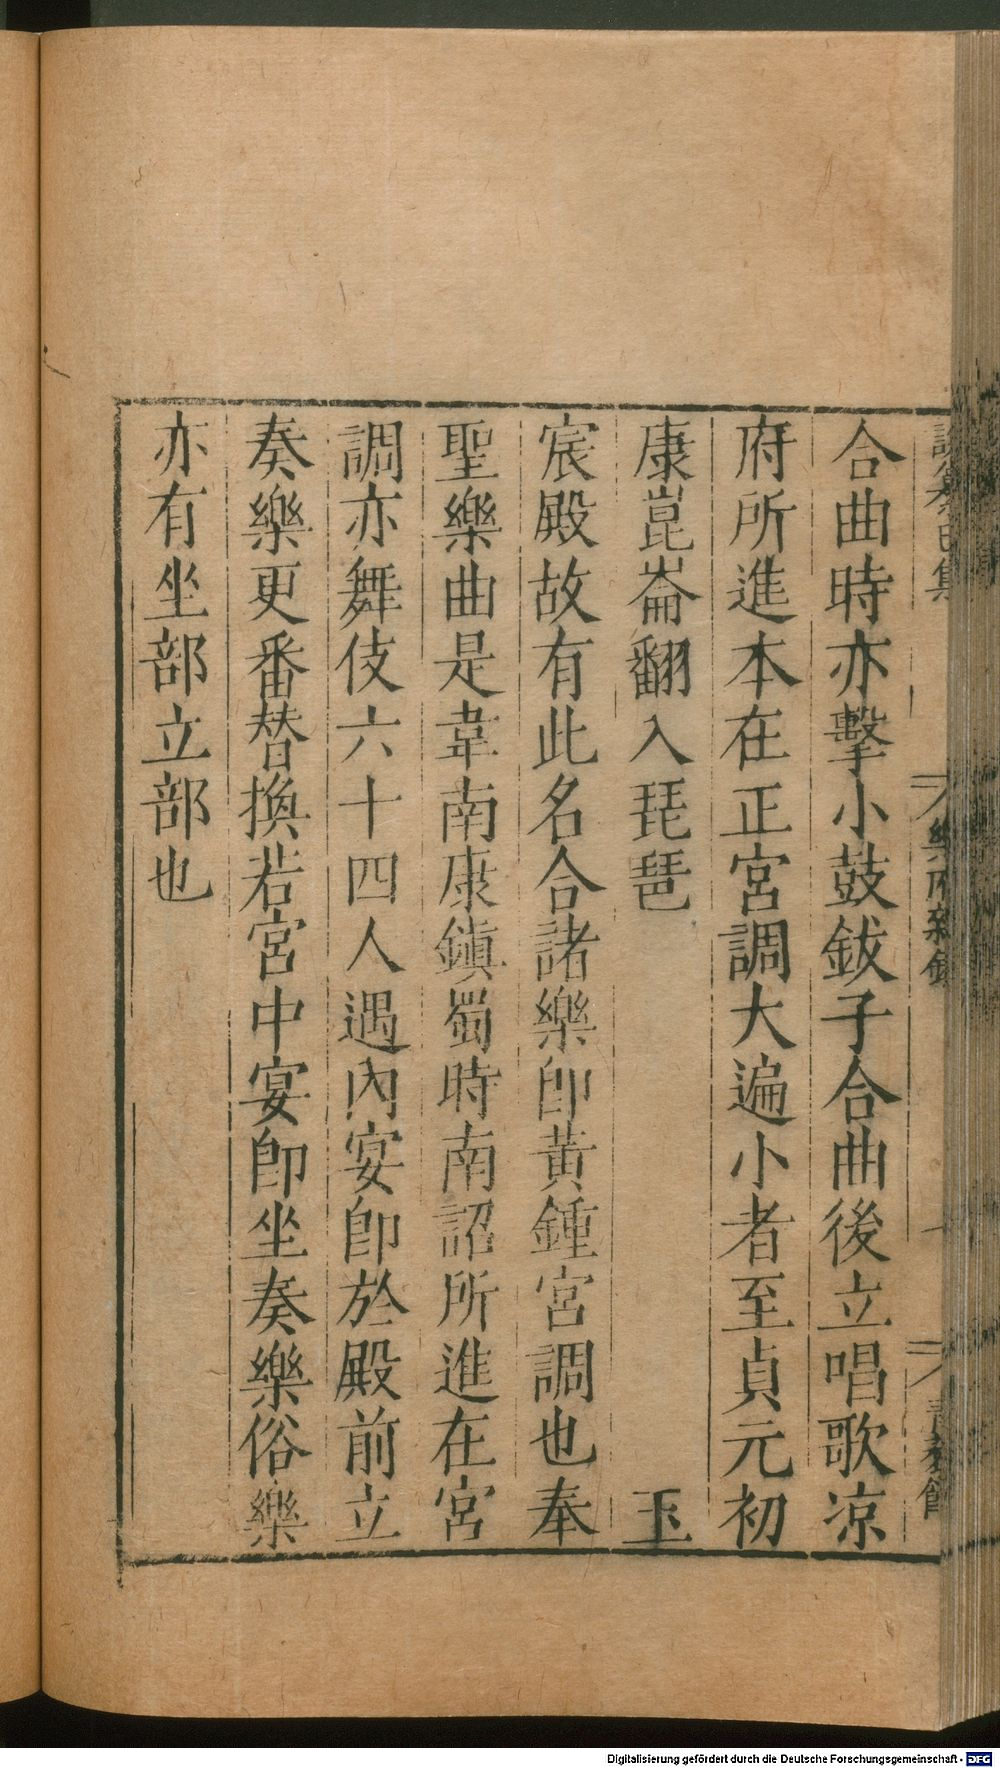 合曲時亦擊小鼓鈸子合曲後立唱歌凉
府所進本在正宮調大遍小者至貞元初
康崑崙翻入琵琶玉
宸殿故有此名合諸樂即黃鍾宮調也奉
聖樂曲是韋南康鎮蜀時南詔所進在宮
調亦舞伎六十四人遇內宴即於殿前立
奏樂更番替換若宮中宴即坐奏樂俗樂
亦有坐部立部也
樂府雜錄
Digitalisierung gefördert durch die Deutsche Forschungsgemeinschaft - DFG